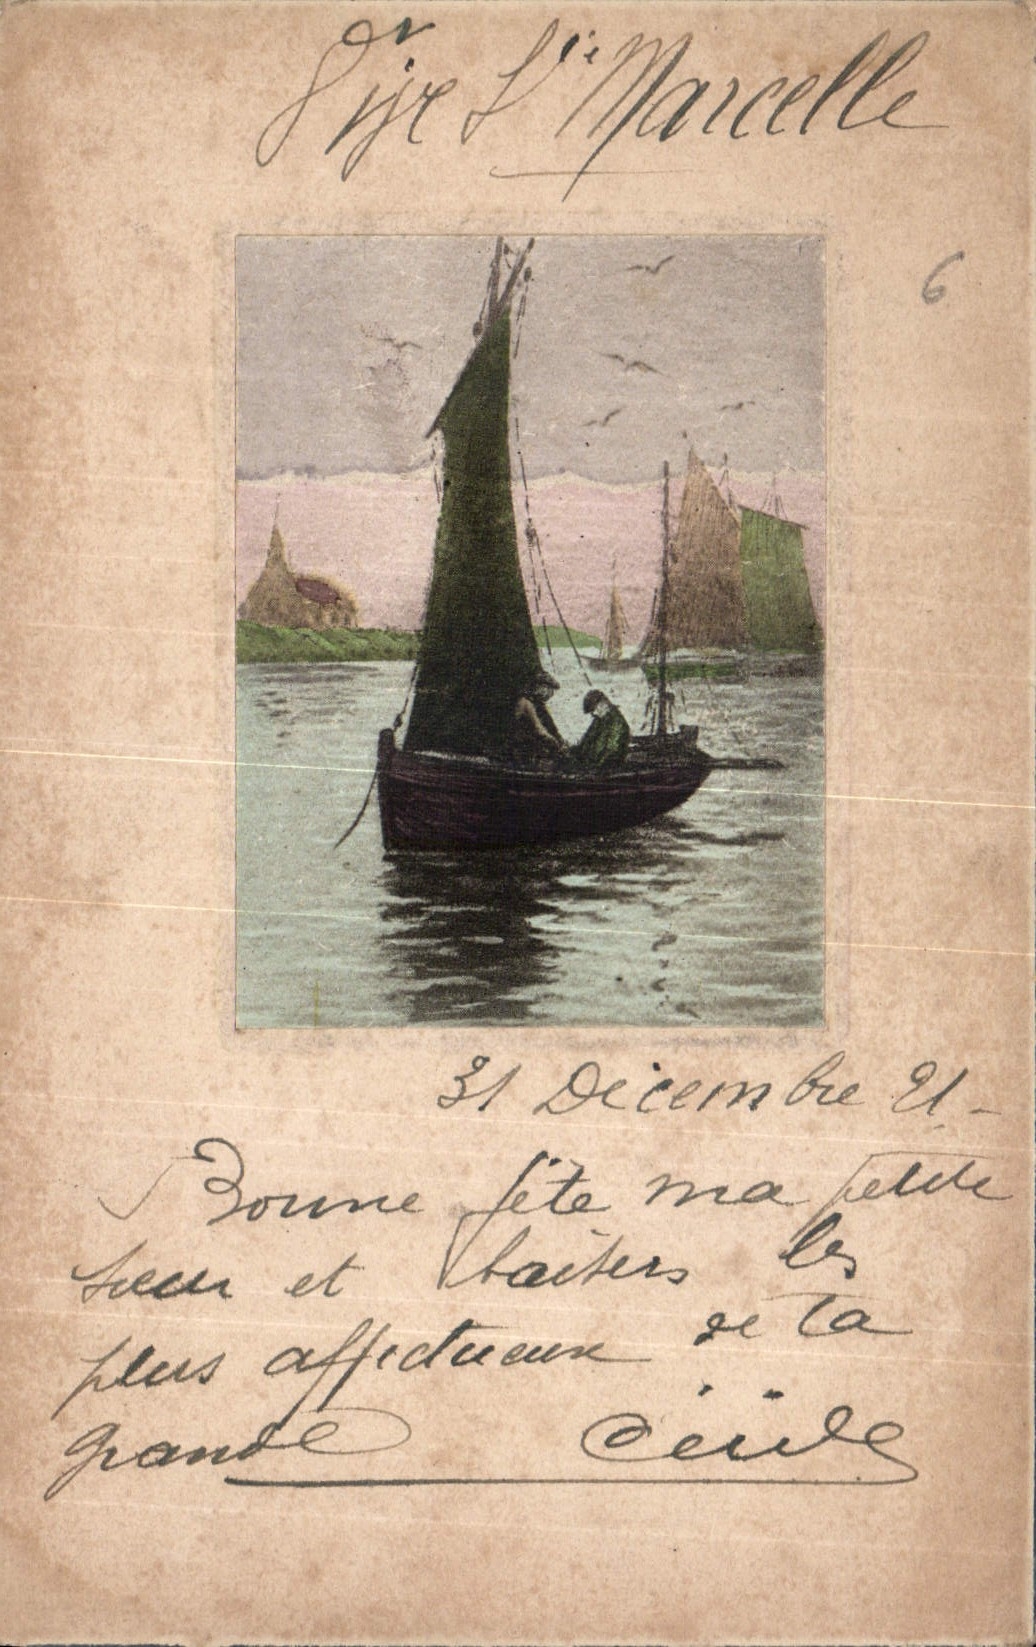 Vive Ste Marcelle
6
31 Décembre 21-
Bonne fête ma petite
sœur et baisers les
plus affectueux de ta
grande Cécile